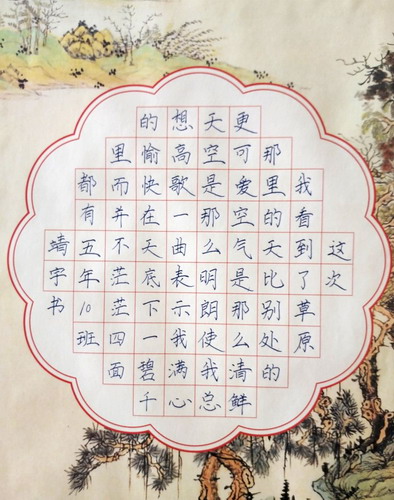 这次
我看到了草原
那里的天比别处的
更可爱空气是那么清鲜
天空是那么明朗使我总
想高歌一曲表示我满心
的愉快在天底下一碧千
里而并不茫茫四面
都有五年10班
靖宇书